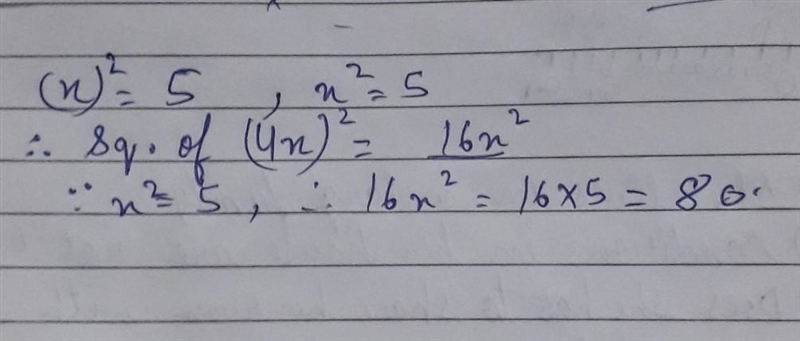 (x)² = 5 , x² = 5
∴ Sq. of (4x)² = 16x²
∵ x² = 5, ∴ 16x² = 16×5 = 80.